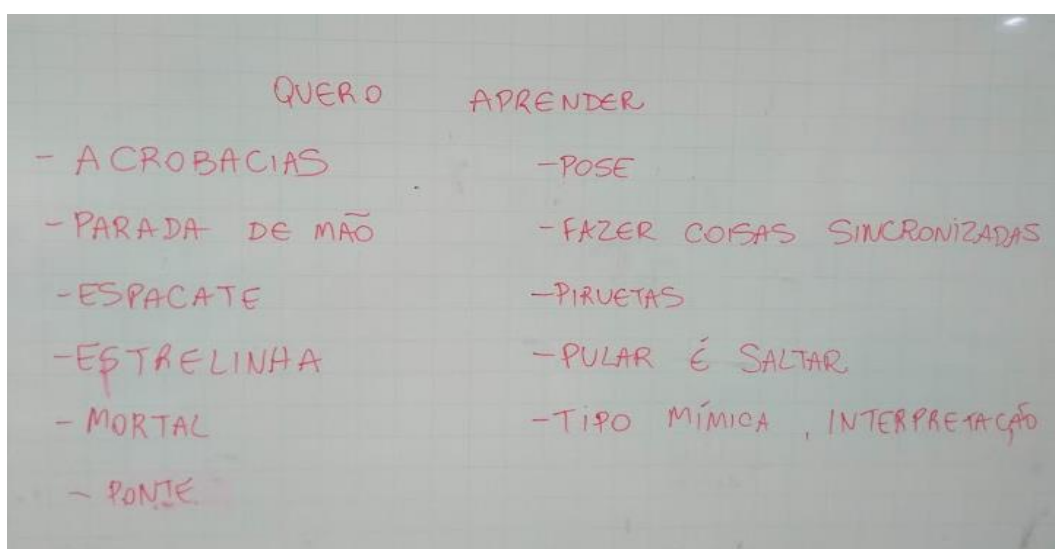 QUERO APRENDER
- ACROBACIAS
- PARADA DE MÃO
- ESPACATE
- ESTRELINHA
- MORTAL
- PONTE
- POSE
- FAZER COISAS SINCRONIZADAS
- PIRUETAS
- PULAR É SALTAR
- TIPO MÍMICA, INTERPRETAÇÃO